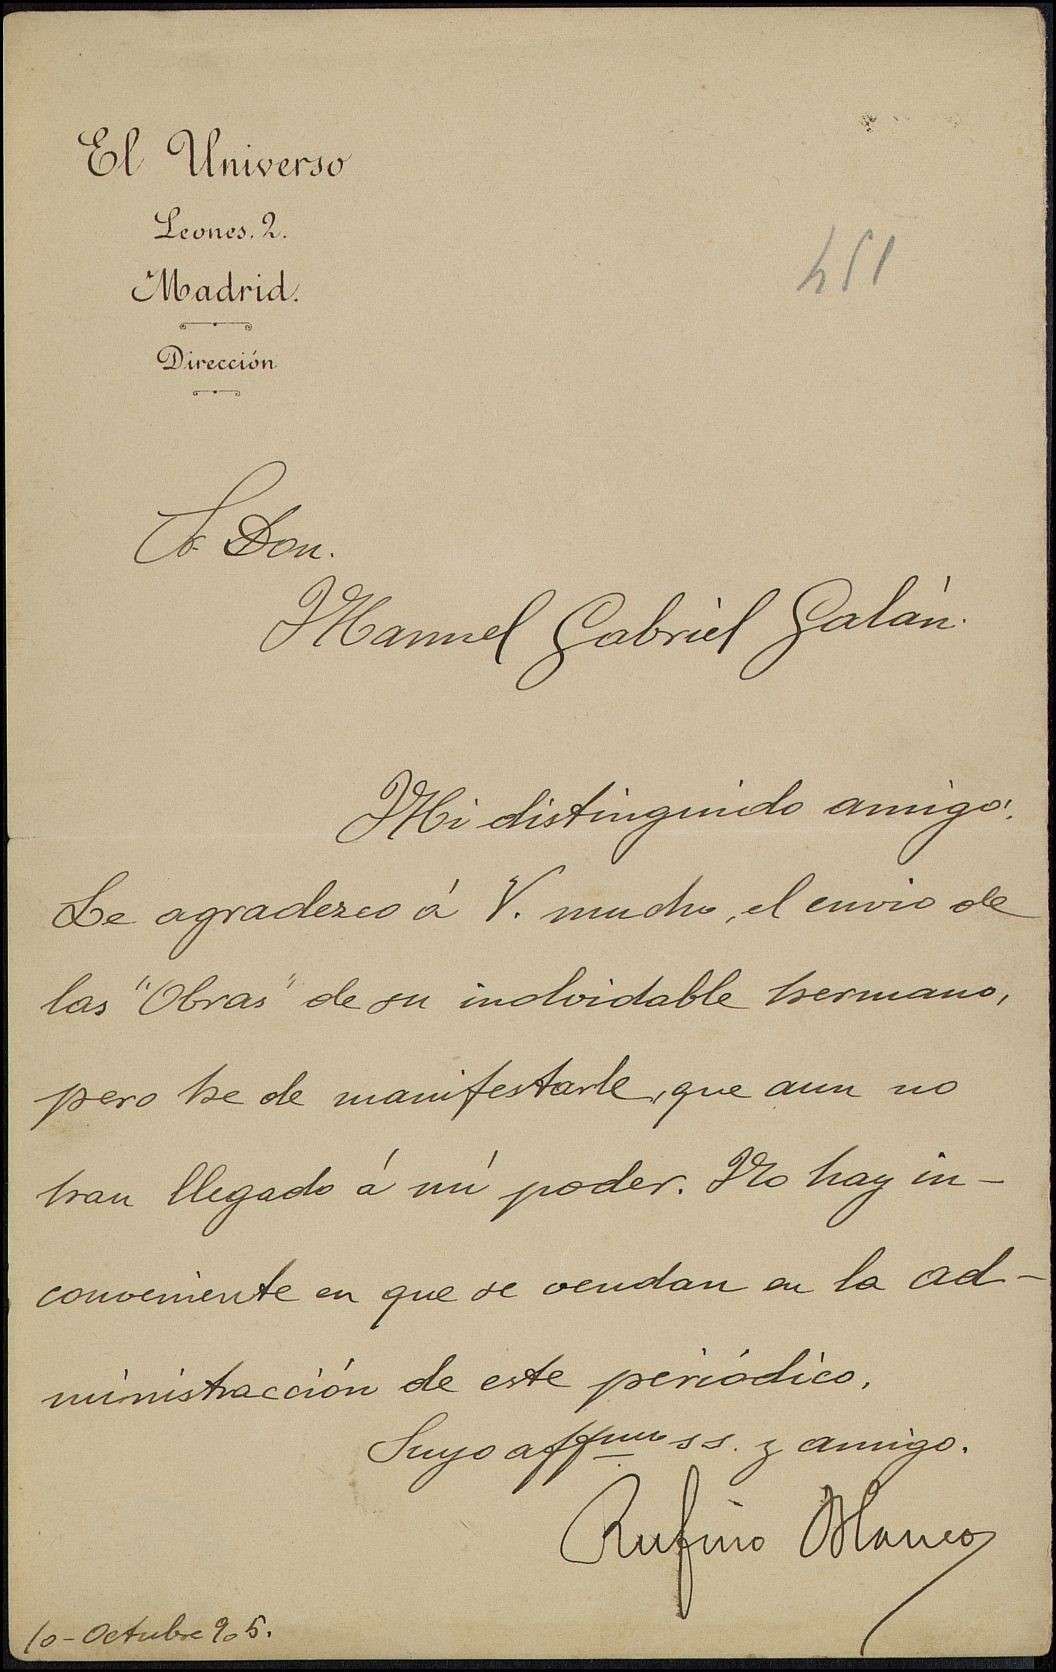 El Universo
Leones. 2.
Madrid.
Dirección
151
Sr. Don.
Manuel Gabriel Galán.
Mi distinguido amigo:
Le agradezco á V. mucho, el envio de
las "Obras" de su inolvidable hermano,
pero he de manifestarle, que aun no
han llegado á mí poder. No hay in-
conveniente en que se vendan en la ad-
ministracción de este periódico.
Suyo affmo s s. y amigo.
Rufino Blanco
10-Octubre 905.